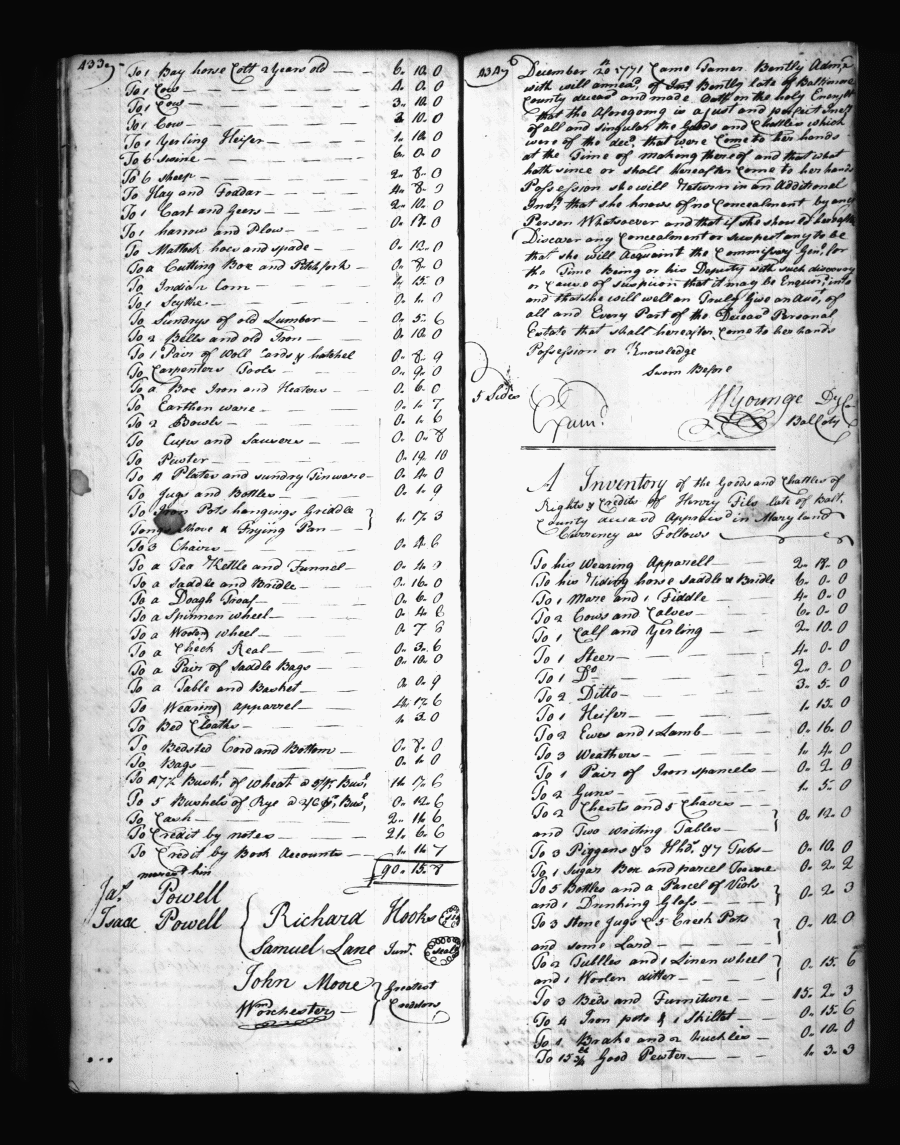 433
To 1 Bay horse Colt 2 Years old 6. 10. 0
To 1 Cow 4. 0. 0
To 1 Cow 3. 10. 0
To 1 Cow 3 10. 0
To 1 Yerling Heifer 1. 10. 0
To 6 Swine 6. 0. 0
To 6 Sheep 2. 8. 0
To Hay and Foddar 4. 8. 0
To 1 Cart and Geers 2. 10. 0
To 1 harrow and Plow
To Mattock hoes and spade 0. 12. 0
To a Cutting Box and Pitchfork 0. 8. 0
To Indian Corn 15. 0
To 1 Scythe 0. 1. 0
To Sundrys of old Lumber 0. 5. 6
To 2 Bells and old Iron 0. 10. 0
To 1 Pair of Woll Cards & hatchel 0. 8. 9
To Carpenters Tools 0. 9. 0
To a Box Iron and Heaters 0. 6. 0
To Earthen ware 0. 1. 7
To 2 Bowls 0. 1. 6
To Cups and Sausers 0. 0. 8
To Pewter 0. 19. 10
To 4 Plates and sundry Tinware 0. 4. 0
To Jugs and Bottles 0. 1. 9
To Iron Pots hangings Griddle
Tongs Shove & Frying Pan 1. 17. 3
To 3 Chairs 0. 4. 6
To a Tea Kettle and Funnel 0. 4.
To a Saddle and Bridle 0. 16. 0
To a Doagh Troaf 0. 6. 0
To a Spinnen wheel 0. 4. 6
To a Woolen wheel 0. 7 6
To a Check Real 0. 3. 6
To a Pair of Saddle Bags 0. 10. 0
To a Table and Basket 0. 9
To Wearing apparrel 4. 17. 6
To Bed Cloaths 1. 3. 0
To Bedsted Cord and Bottom 0. 8. 0
To Bags 0. 1. 0
To 47½ Bushs. of wheat a 5/ pr. Bus. 11. 7. 6
To 5 Bushels of Rye a 2/6 pr. Bus. 0. 12. 6
To Cash 2. 11. 6
To Credit by notes 21. 6. 6
To Credit by Book Accounts 1. 11. 7
nearest kin 90. 15. 8
Jas. Powell
Isaac Powell
Richard Hooks seal
Samuel Lane Junr. seal
John Moore Greatest
Wm Worchester Creditors
434
December 20th 1771 Came Tamer Bently Admx.
with will annexd. of Just Bently late of Baltimore
County deceasd and made Oath on the holy Evangels
that the aforegoing is a just and perfect Invy.
of all and singular the Goods and Chattles which
were of the decd. that were Come to her hands
at the Time of making thereof and that what
hath since or shall hereafter Come to her hands
Possession she will Return in an Additional
Invy. that she knows of no Concealment by any
Person Whatsoever and that if she should hereafter
Discover any Concealment or suspect any to be
that she will Acquaint the Commissary Genl. for
the Time Being or his Deputy with such discovery
or Cause of suspicion that it may be Enquird. into
and that she will well an Truly Give an Acct. of
all and Every Part of the Deceasd. Personal
Estate that shall hereafter Come to her hands
Possession or Knowledge
Sworn Before
5 Sides
Examd.
W Younge Dy Co.
Bal Coty
A Inventory of the Goods and Chattles of
Rights & Credits of Henry late of Balt.
County deceasd Appraisd in Maryland
Currency as Follows
To his Wearing Apparell 2. 12. 0
To his Riding horse Saddle & Bridle 6. 0. 0
To 1 Mare and 1 Fiddle 4. 0. 0
To 2 Cows and Calves 6. 0. 0
To 1 Calf and Yerling 2. 10. 0
To 1 Steer 4. 0. 0
To 1 Do. 2. 0. 0
To 2 Ditto 3. 5. 0
To 1 Heifer 1. 15. 0
To 2 Ewes and 1 Lamb 0. 16. 0
To 3 Weathers 1. 4. 0
To 1 Pair of Iron spancels 0. 2. 0
To 2 Guns 1. 5. 0
To 2 Chests and 5 Chaires
and Two writing Tables 0. 12. 0
To 3 Piggens & 3 Hhds. & 7 Tubs 0. 10. 0
To 1 Sugar Box and parcel 0. 2. 2
To 5 Bottles and a Parcel of Viols
and 1 Drinking Glass 0. 2. 3
To 3 Stone Jugs & 5 Creek Pots
and some Lard 0. 10. 0
To 2 Tubbles and 1 Linen wheel
and 1 Woolen ditter 0. 15. 6
To 3 Beds and Furniture 15. 2. 3
To 4 Iron pots & 1 Skillet 0. 15. 6
To 1 Brake and 2 huckles 0. 10. 0
To 15¾ Good Pewter 1. 3. 3